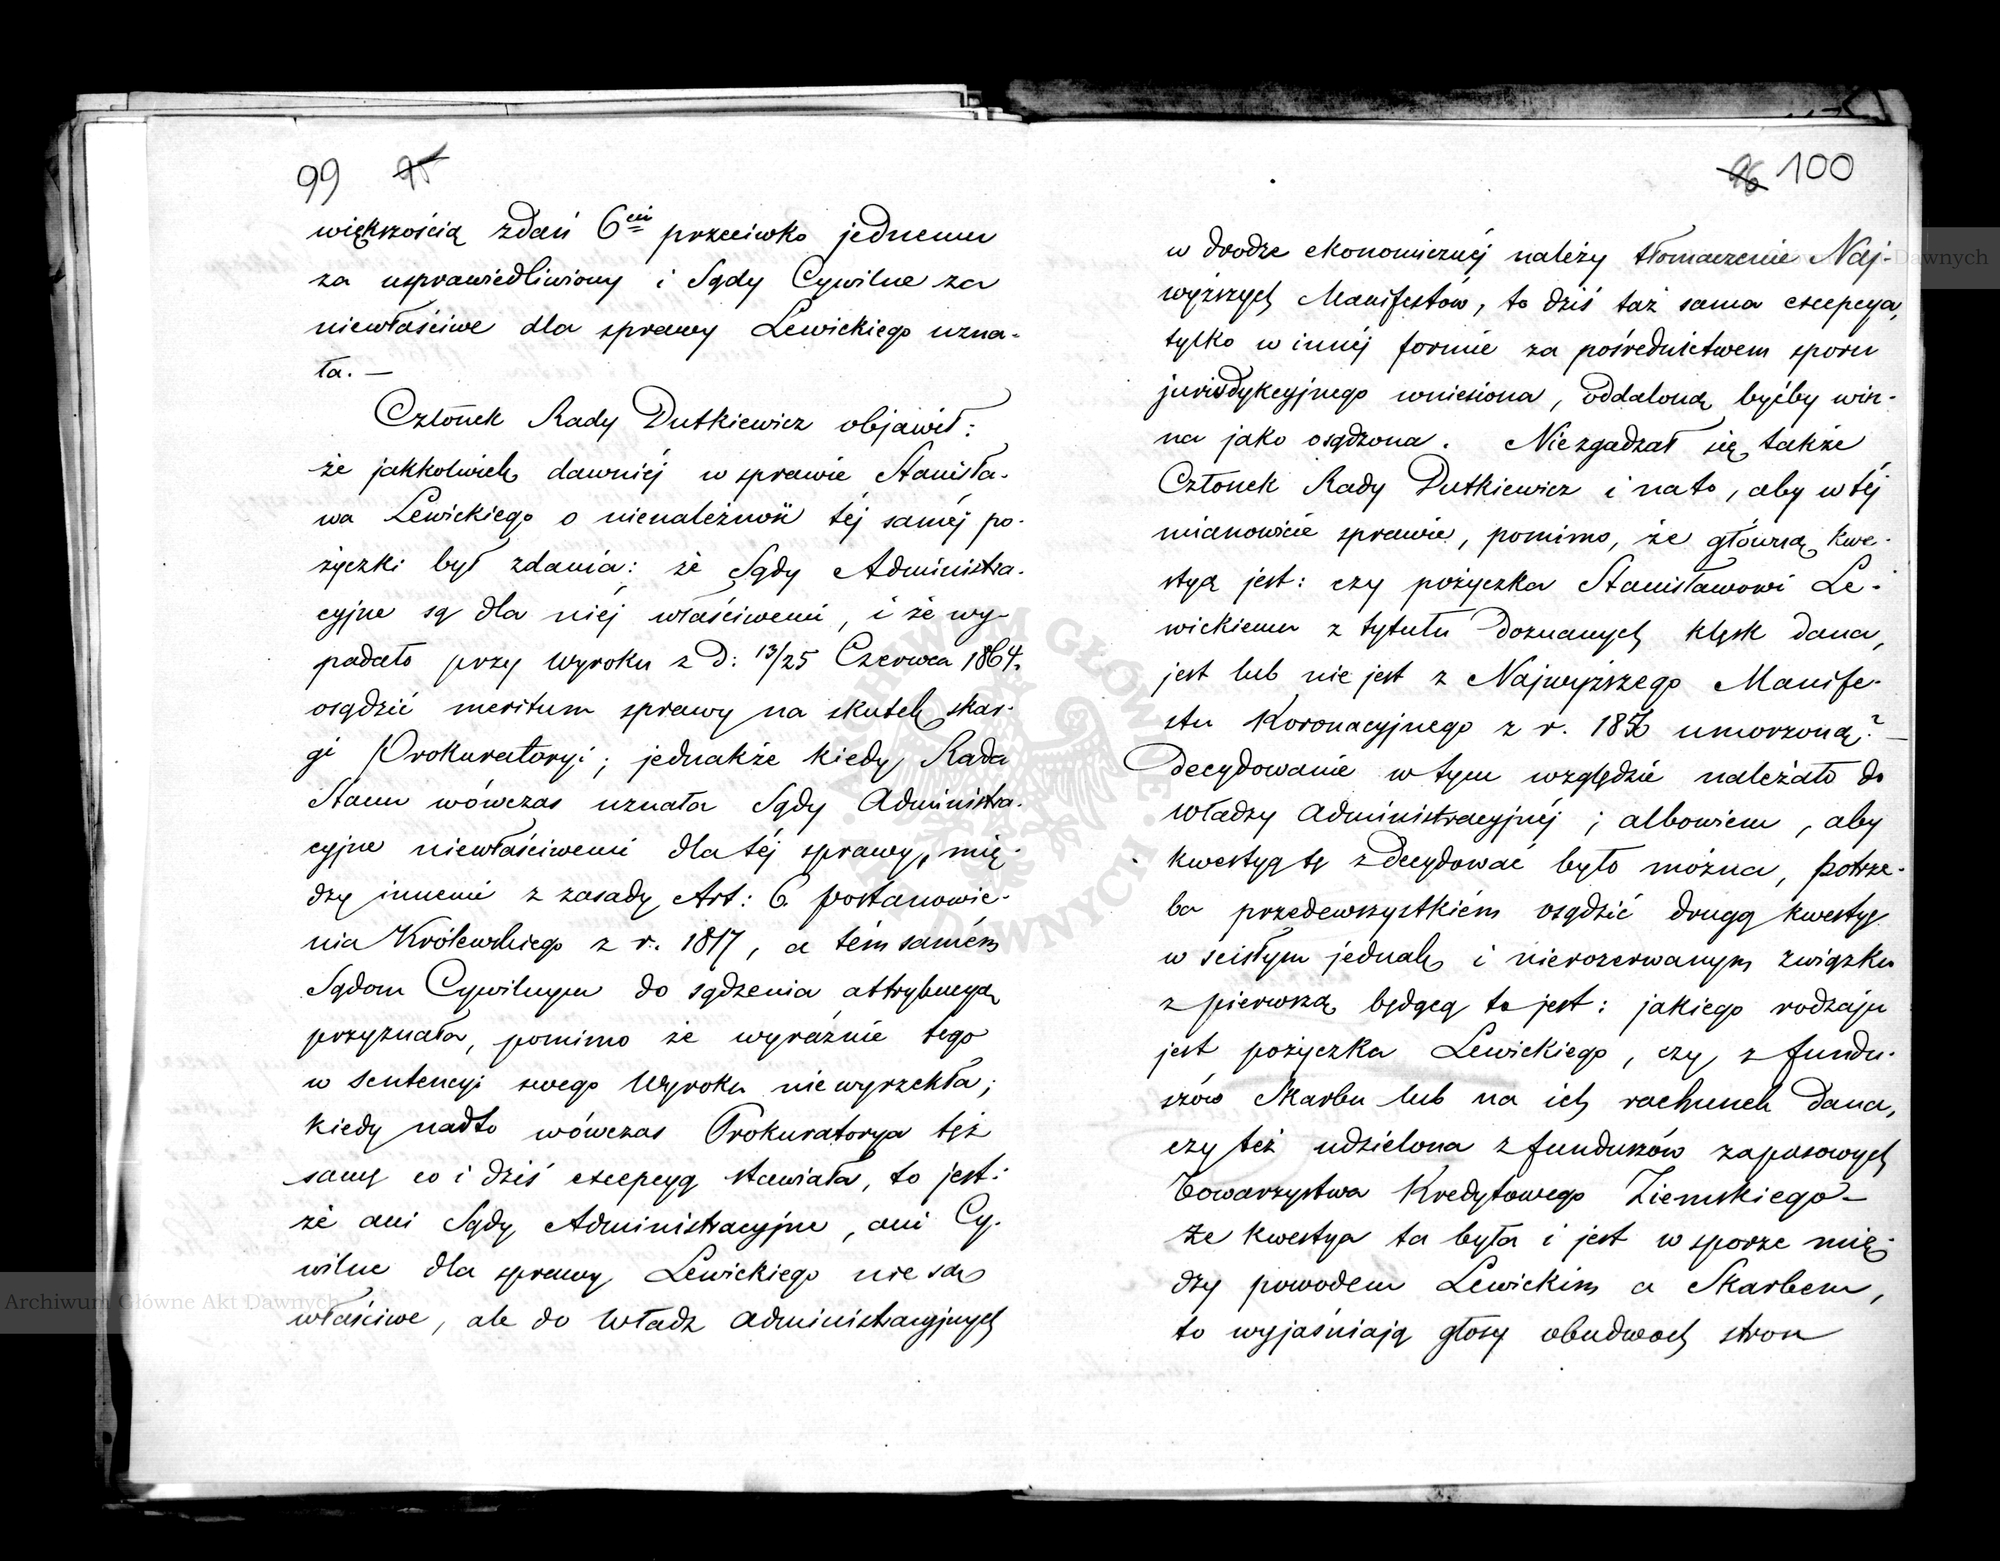 99 95
większością zdań 6ciú przeciwko jednemu
za usprawiedliwiony i Sądy Cywilne za
niewłaściwe dla sprawy Lewickiego uzna-
ła. —
Członek Rady Dutkiewicz objawił:
że jakkolwiek dawniéj w sprawie Stanisła-
wa Lewickiego o nienależność téj saméj po-
życzki był zdania: że Sądy Administra-
cyjne są dla niéj właściwemi, i że wy-
padało przy Wyroku z D: 13/25 Czerwca 1864.
osądzić meritum sprawy na skutek skar-
gi Prokuratoryi; jednakże kiedy Rada
Stanu wówczas uznała Sądy Administra-
cyjne niewłaściwemi dla téj sprawy, mię-
dzy innemi z zasady Art: 6. postanowie-
nia Królewskiego z r. 1817, a tém samém
Sądom Cywilnym do sądzenia attrybucyą
przyznała, pomimo że wyraźnie tego
w Sentencyi swego Wyroku nie wyrzekła;
kiedy nadto wówczas Prokuratorya tęż
samą co i dziś excepcyą stawiała, to jest:
że ani Sądy Administracyjne, ani Cy-
wilne dla sprawy Lewickiego nie są
właściwe, ale do Władz Administracyjnych
96 100
w drodze ekonomicznéj należy tłomaczenie Naj-
wyższych Manifestów, to dziś taż sama excepcya,
tylko w innéj formie za pośrednictwem sporu
jurisdykcyjnego wniesiona, oddaloną byćby win-
na jako osądzona. Niezgadzał się także
Członek Rady Dutkiewicz i na to, aby w téj
mianowicie sprawie, pomimo, że główną kwe-
styą jest: czy pożyczka Stanisławowi Le-
wickiemu z tytułu doznanych klęsk dana,
jest lub nie jest z Najwyższego Manife-
stu Koronacyjnego z r. 1856 umorzoną? —
Decydowanie w tym względzie należało do
Władzy Administracyjnéj; albowiem, aby
kwestyą tę zdecydować było można, potrze-
ba przedewszystkiém osądzić drugą kwestyę
w scisłym jednak i nierozerwanym związku
z pierwszą będącą to jest: jakiego rodzaju
jest pożyczka Lewickiego, czy z fundu-
szów Skarbu lub na ich rachunek dana,
czy też udzielona z funduszów zapasowych
Towarzystwa Kredytowego Ziemskiego —
Że kwestya ta była i jest w sporze mię-
dzy powodem Lewickim a Skarbem,
to wyjaśniają głosy obudwoch stron
ARCHIWUM GŁÓWNE AKT DAWNYCH
Archiwum Główne Akt Dawnych
Archiwum Główne Akt Dawnych